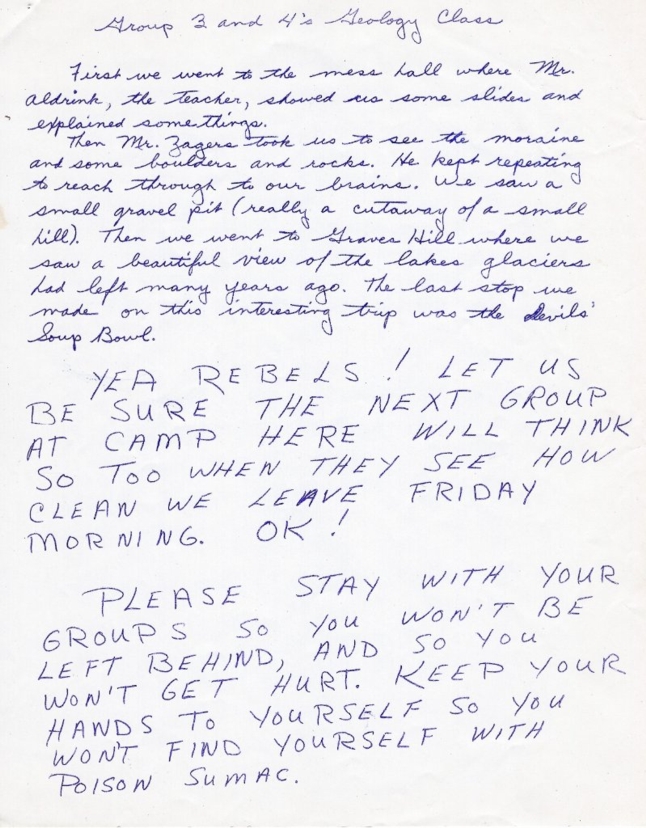 Group 3 and 4's Geology Class
First we went to the mess hall where Mr.
Aldrink, the teacher, showed us some slides and
explained some things.
Then Mr. Zagers took us to see the moraine
and some boulders and rocks. He kept repeating
to reach through to our brains. We saw a
small gravel pit (really a cutaway of a small
hill). Then we went to Graves Hill where we
saw a beautiful view of the lakes glaciers
had left many years ago. The last stop we
made on this interesting trip was the Devils'
Soup Bowl.
YEA REBELS! LET US
BE SURE THE NEXT GROUP
AT CAMP HERE WILL THINK
SO TOO WHEN THEY SEE HOW
CLEAN WE LEAVE FRIDAY
MORNING. OK!
PLEASE STAY WITH YOUR
GROUPS SO YOU WON'T BE
LEFT BEHIND, AND SO YOU
WON'T GET HURT. KEEP YOUR
HANDS TO YOURSELF SO YOU
WON'T FIND YOURSELF WITH
POISON SUMAC.